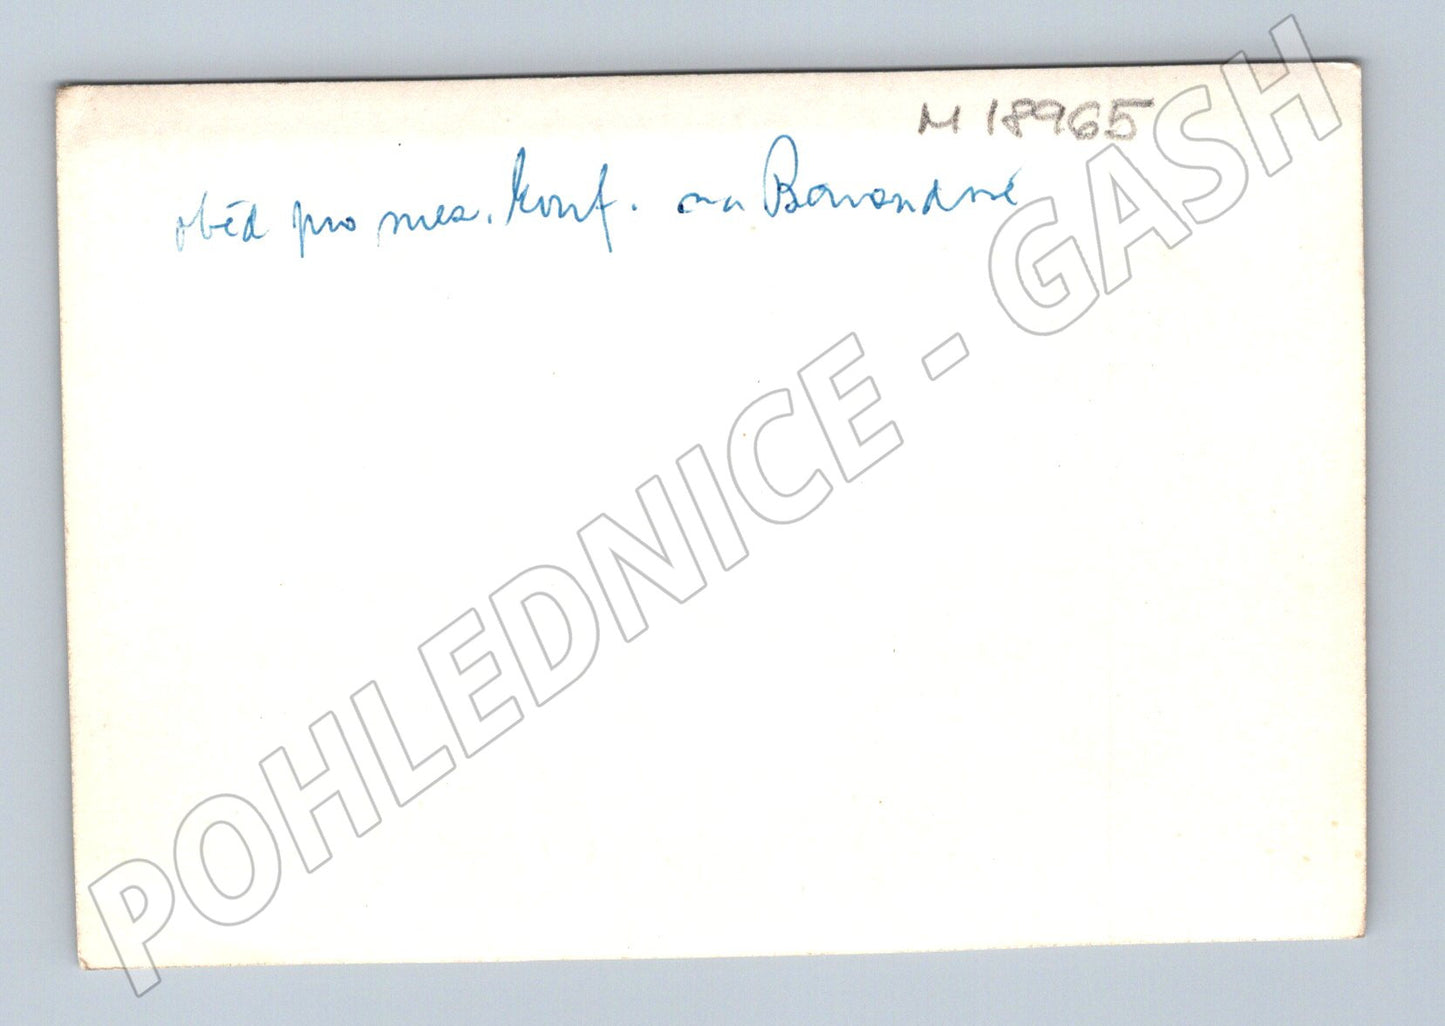 M 18965
oběd pro mez. konf. na Barrandově
POHLEDNICE - GASH